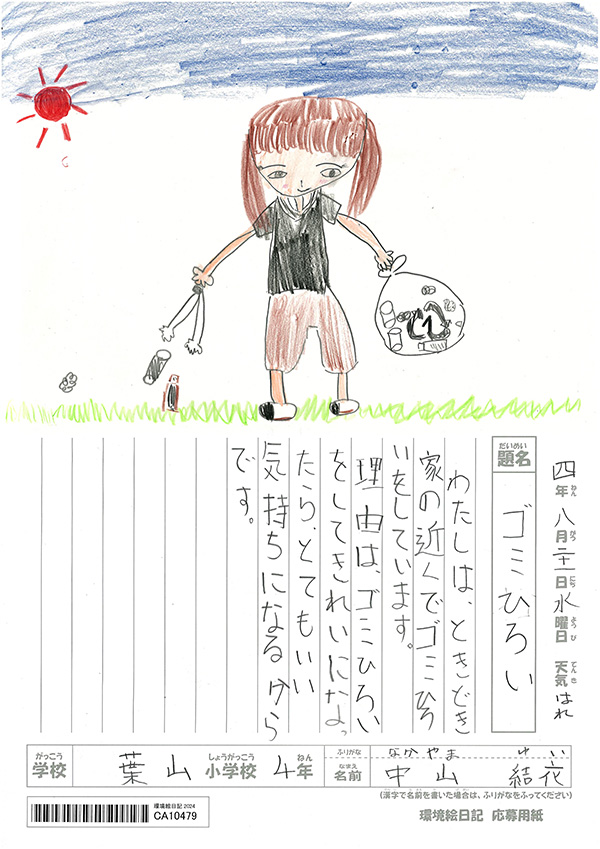 四年八月二十一日水曜日 天気はれ
ねん がつ にち ようび てんき
だいめい
題名
ゴミひろい
わたしは、ときどき
家の近くでゴミひろ
いをしています。
理由は、ゴミひろい
をしてきれいになっ
たら、とてもいい
気持ちになるから
です。
がっこう しょうがっこう ねん ふりがな なかやま ゆい
学校 葉山小学校 4年
なまえ
名前 中山 結衣
(漢字で名前を書いた場合は、ふりがなをふってください)
環境絵日記 2024
CA10479
環境絵日記 応募用紙